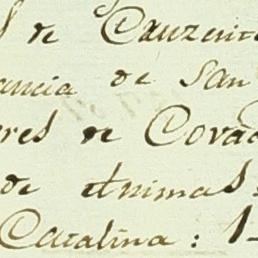 de Cauzent
ancia de San
res de Covad
de Animas:
Catalina: 1